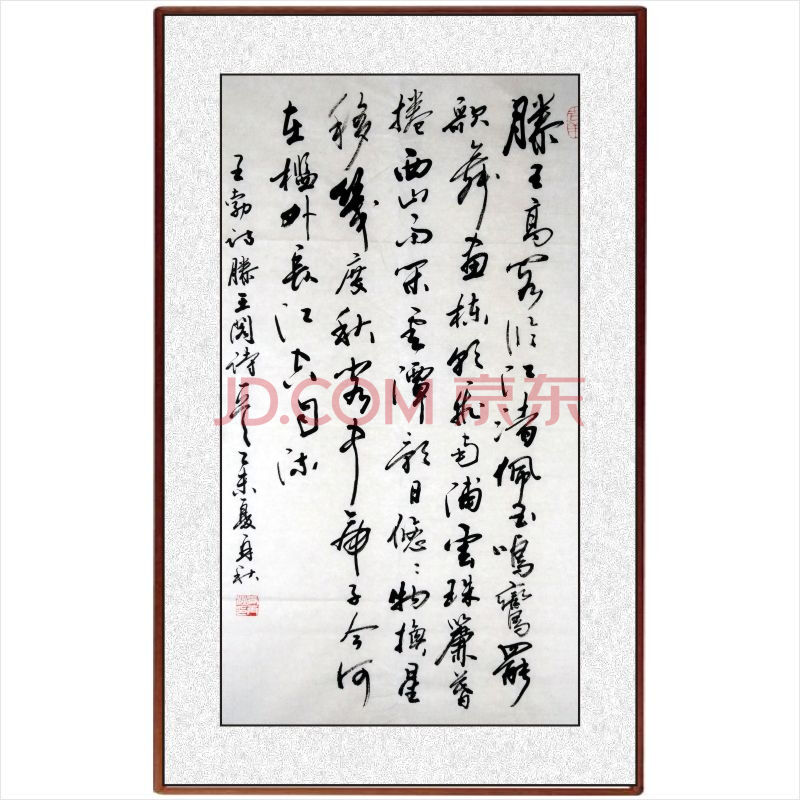 滕王高阁临江渚佩玉鸣鸾罷
歌舞画栋朝飞南浦雲珠簾暮
捲西山雨闲雲潭影日悠〻物换星
移幾度秋阁中帝子今何
在槛外長江空自流
王勃诗滕王阁诗一首乙未夏
JD.COM 京东